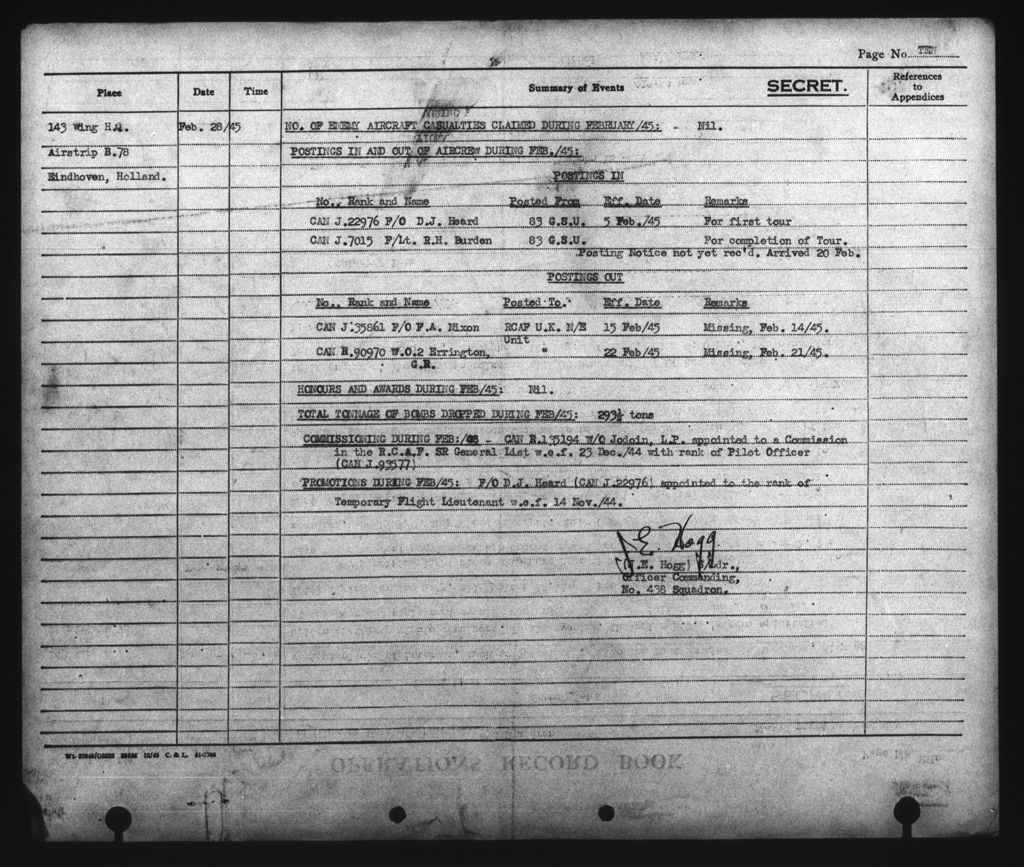 Page No. TEN
Place Date Time Summary of Events SECRET. References to Appendices
143 Wing H.Q. Feb. 28/45 NO. OF ENEMY AIRCRAFT CASUALTIES CLAIMED DURING FEBRUARY/45: - Nil.
Airstrip B.78 POSTINGS IN AND OUT OF AIRCREW DURING FEB./45:
Eindhoven, Holland. POSTINGS IN
No., Rank and Name Posted From Eff. Date Remarks
CAN J.22976 F/O D.J. Heard 83 G.S.U. 5 Feb./45 For first tour
CAN J.7015 F/Lt. R.H. Burden 83 G.S.U. For completion of Tour.
Posting Notice not yet rec'd. Arrived 20 Feb.
POSTINGS OUT
No., Rank and Name Posted To. Eff. Date Remarks
CAN J.35861 F/O F.A. Nixon RCAF U.K. N/E 15 Feb/45 Missing, Feb. 14/45.
Unit
CAN R.90970 W.O.2 Errington, " 22 Feb/45 Missing, Feb. 21/45.
G.R.
HONOURS AND AWARDS DURING FEB/45: Nil.
TOTAL TONNAGE OF BOMBS DROPPED DURING FEB/45: 293½ tons
COMMISSIONING DURING FEB:/45 - CAN R.135194 W/O Jodoin, L.P. appointed to a Commission
in the R.C.A.F. SR General List w.e.f. 23 Dec./44 with rank of Pilot Officer
(CAN J.93577)
PROMOTIONS DURING FEB/45: F/O D.J. Heard (CAN J.22976) appointed to the rank of
Temporary Flight Lieutenant w.e.f. 14 Nov./44.
J E. Hogg
(J.E. Hogg) S/Ldr.,
Officer Commanding,
No. 438 Squadron.
OPERATIONS RECORD BOOK